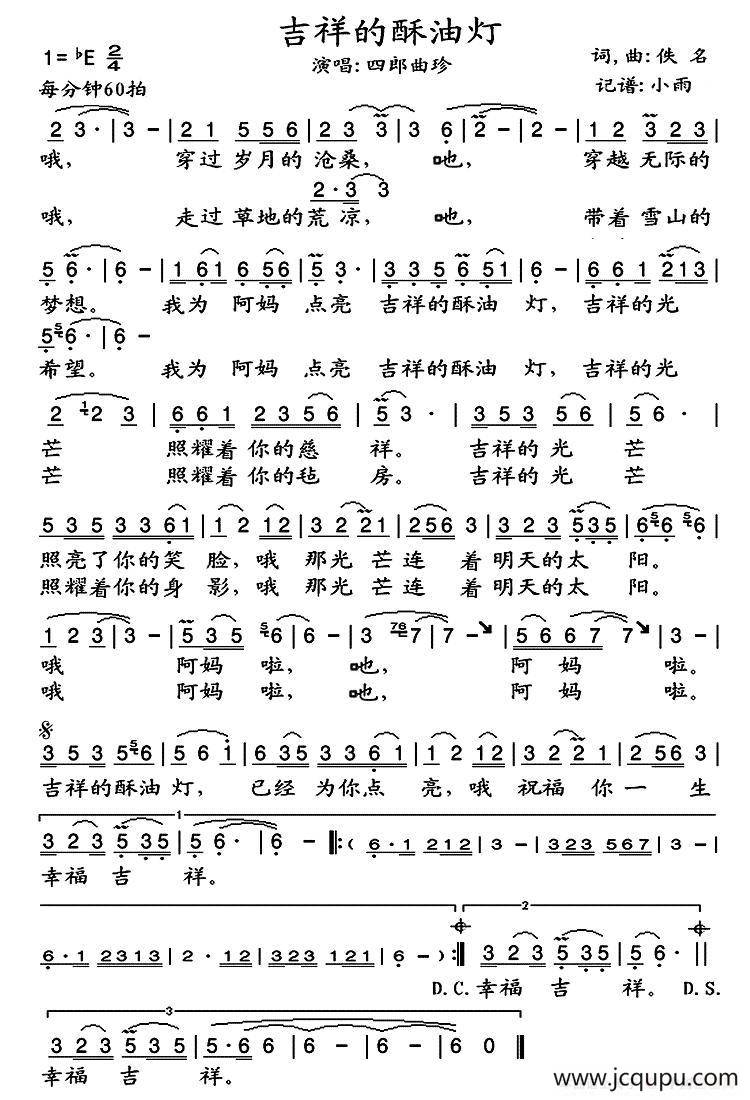 吉祥的酥油灯
1=♭E 2/4 演唱:四郎曲珍 词,曲:佚 名
每分钟60拍 记谱:小雨
2 3·|3 -|2 1 5 5 6|2 3 3|3 6|2 -|2 -|1 2 3 2 3|
哦, 穿过 岁月的 沧桑, 吔, 穿越 无际的
2·3 3
哦, 走过 草地的 荒 凉, 吔, 带着 雪山的
5 6·|6 -|1 6 1 6 5 6|5 3·|2 3 5 6 5 1|6 -|6 6 1 2 1 3|
梦想。 我为 阿妈 点亮 吉祥的酥油 灯, 吉祥的光
5 5 6·|6 -
希望。 我为 阿妈 点亮 吉祥的酥油 灯, 吉祥的光
2 1 2 3|6 6 1 2 3 5 6|5 3·|3 5 3 5 6|5 6·|
芒 照耀着 你的慈 祥。 吉祥的 光 芒
芒 照耀着 你的毡 房。 吉祥的 光 芒
5 3 5 3 3 6 1|1 2 1 2|3 2 2 1|2 5 6 3|3 2 3 5 3 5|6 5 6 5 6|
照亮了 你的笑 脸, 哦 那光 芒连 着 明天的太 阳。
照耀着 你的身 影, 哦 那光 芒连 着 明天的太 阳。
1 2 3|3 -|5 3 5 5 6|6 -|3 7 6 7|7 -|5 6 6 7 7|3 -|
哦 阿妈 啦, 吔, 阿 妈 啦。
哦 阿妈 啦, 吔, 阿 妈 啦。
3 5 3 5 5 6|5 6 1|6 3 5 3 3 6 1|1 2 1 2|3 2 2 1|2 5 6 3|
吉祥的酥油 灯, 已经 为你点 亮, 哦 祝福 你一 生
1
3 2 3 5 3 5|5 6·|6 - ‖:( 6·1 2 1 2|3 -|3 2 3 5 6 7|3 -|
幸福 吉 祥。
2
6·1 2 3 1 3|2 · 1 2|3 2 3 1 2 1|6 - ):‖ 3 2 3 5 3 5|5 6·‖
D.C. 幸福 吉 祥。 D.S.
3
3 2 3 5 3 5|5·6 6|6 -|6 -|6 0‖
幸福 吉 祥。
www.jcqupu.com